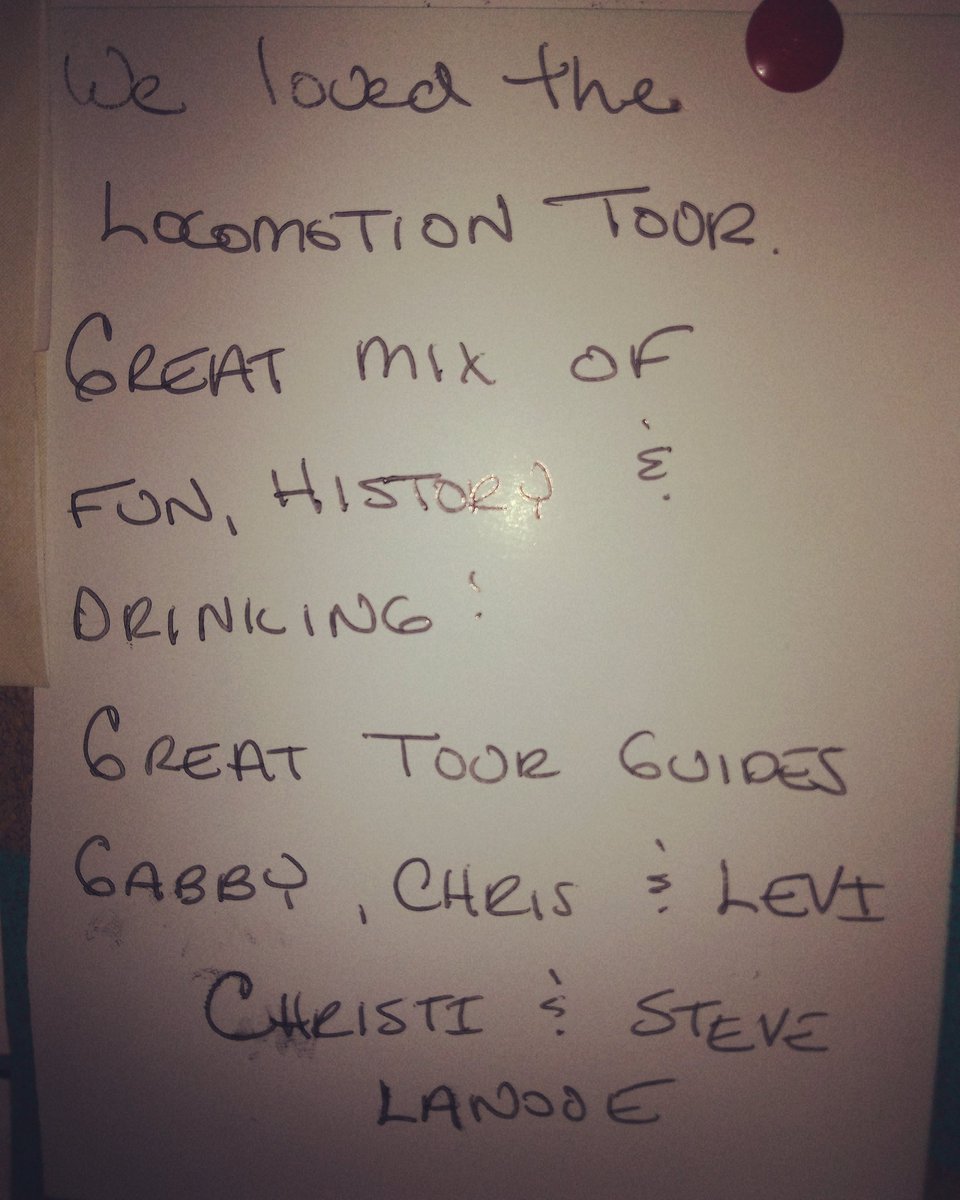 We loved the
LOCOMOTION TOUR.
GREAT MIX OF
FUN, HISTORY &
DRINKING!
GREAT TOUR GUIDES
GABBY, CHRIS & LEVI
CHRISTI & STEVE